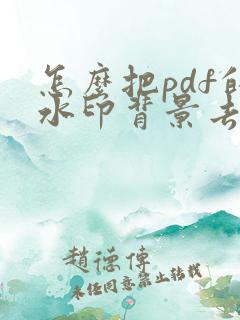 怎麼把pdf的
水印背景去
趙德傳
未任同意禁止转载